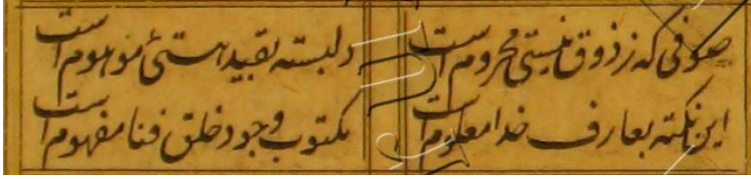 صوفی که ز ذوق نیستی محروم است
دلبسته بقید هستیٔ موهوم است
این نکته بعارف خدا معلوم است
مکتوب وجود خلق فنا مفهوم است